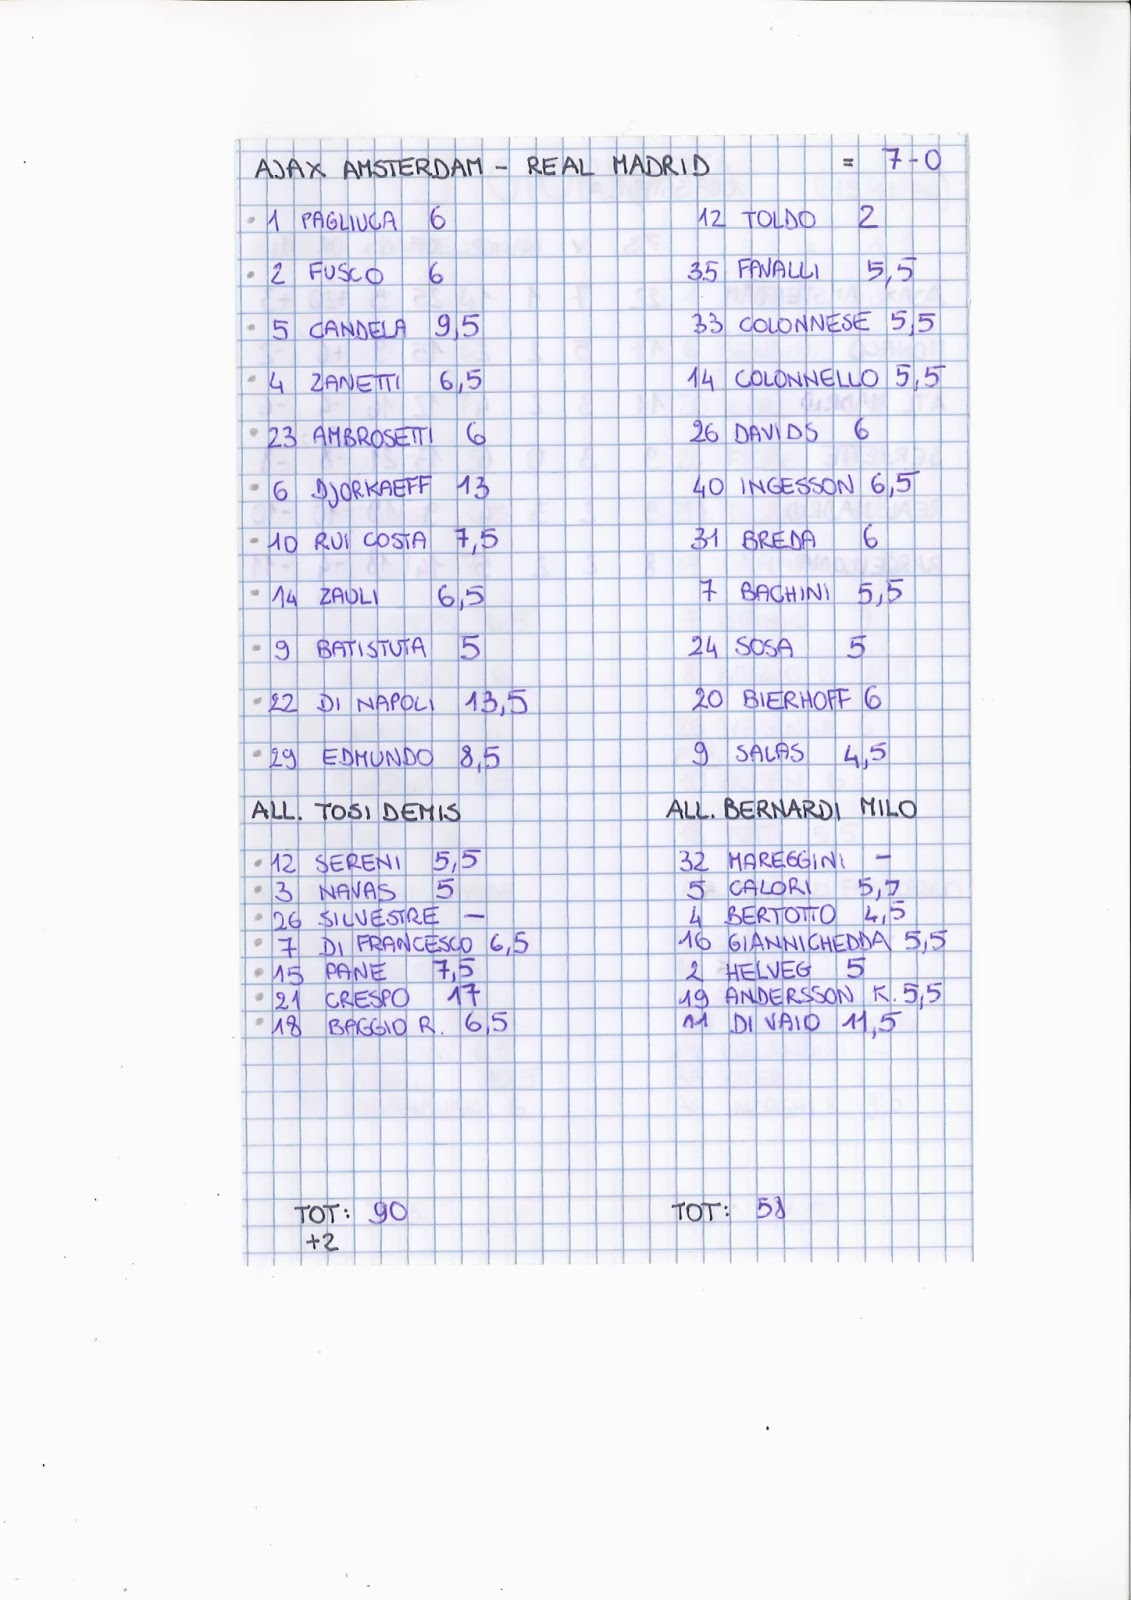 AJAX AMSTERDAM - REAL MADRID = 7-0
1 PAGLIUCA 6 12 TOLDO 2
2 FUSCO 6 35 FAVALLI 5,5
5 CANDELA 9,5 33 COLONNESE 5,5
4 ZANETTI 6,5 14 COLONNELLO 5,5
23 AMBROSETTI 6 26 DAVIDS 6
6 DJORKAEFF 13 40 INGESSON 6,5
10 RUI COSTA 7,5 31 BREDA 6
14 ZAULI 6,5 7 BACHINI 5,5
9 BATISTUTA 5 24 SOSA 5
22 DI NAPOLI 13,5 20 BIERHOFF 6
29 EDMUNDO 8,5 9 SALAS 4,5
ALL. TOSI DEMIS ALL. BERNARDI MILO
12 SERENI 5,5 32 MAREGGINI -
3 NAVAS 5 5 CALORI
26 SILVESTRE - 4 BERTOTTO 4,5
7 DI FRANCESCO 6,5 16 GIANNICHEDDA 5,5
15 PANE 7,5 2 HELVEG 5
21 CRESPO 17 19 ANDERSSON K. 5,5
18 BAGGIO R. 6,5 11 DI VAIO 11,5
TOT: 90 TOT: 58
+2